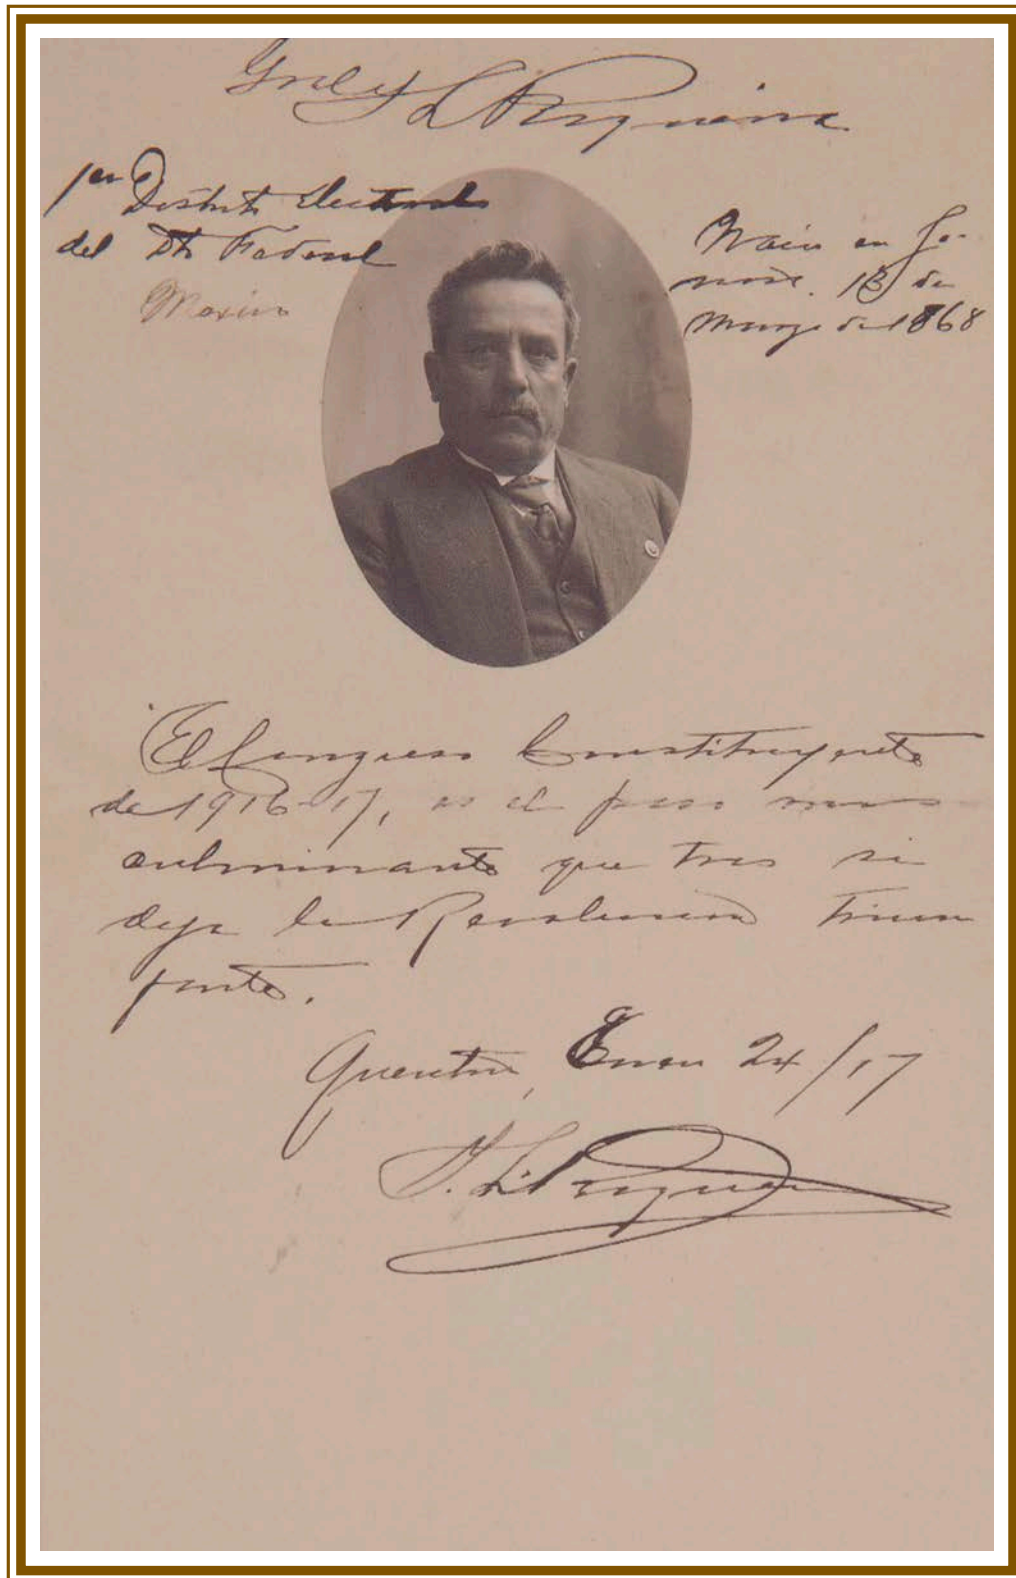 Gral y L Pesqueira
1er Distrito Electoral
del Dto Federal
Mexico
Nacio en So-
nora. 13 de
Marzo de 1868
El Congreso Constituyente
de 1916-17, es el paso mas
culminante que tras si
deja la Revolucion Triun
fante.
Queretaro, Enero 24/17
I. L. Pesqueira